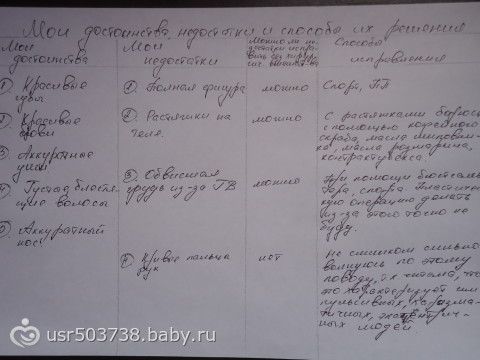 Мои достоинства, недостатки и способы их решения
Мои достоинства
Мои недостатки
Можно ли недостатки исправить без хирургич. вмешат-ва
Способы исправления
1. Красивые губы
2. Красивые брови
3. Аккуратные уши
4. Густые блестящие волосы
5. Аккуратный нос
1. Полная фигура
можно
Спорт, ПП
2. Растяжки на теле.
можно
С растяжками борюсь
с помощью кофейного
скраба, масла
, масла розмарина,
контрактубекса.
3. Обвисшая
грудь из-за ГВ
можно
При помощи бюстгальтера, спорта. Пластическую операцию делать
из-за этого точно не
буду.
4. Кривые пальцы
рук
нет
Не слишком сильно
волнуюсь по этому
поводу, т.к. читала, что
это характеризует импульсивных, харизматичных, эксцентричных людей
usr503738.baby.ru